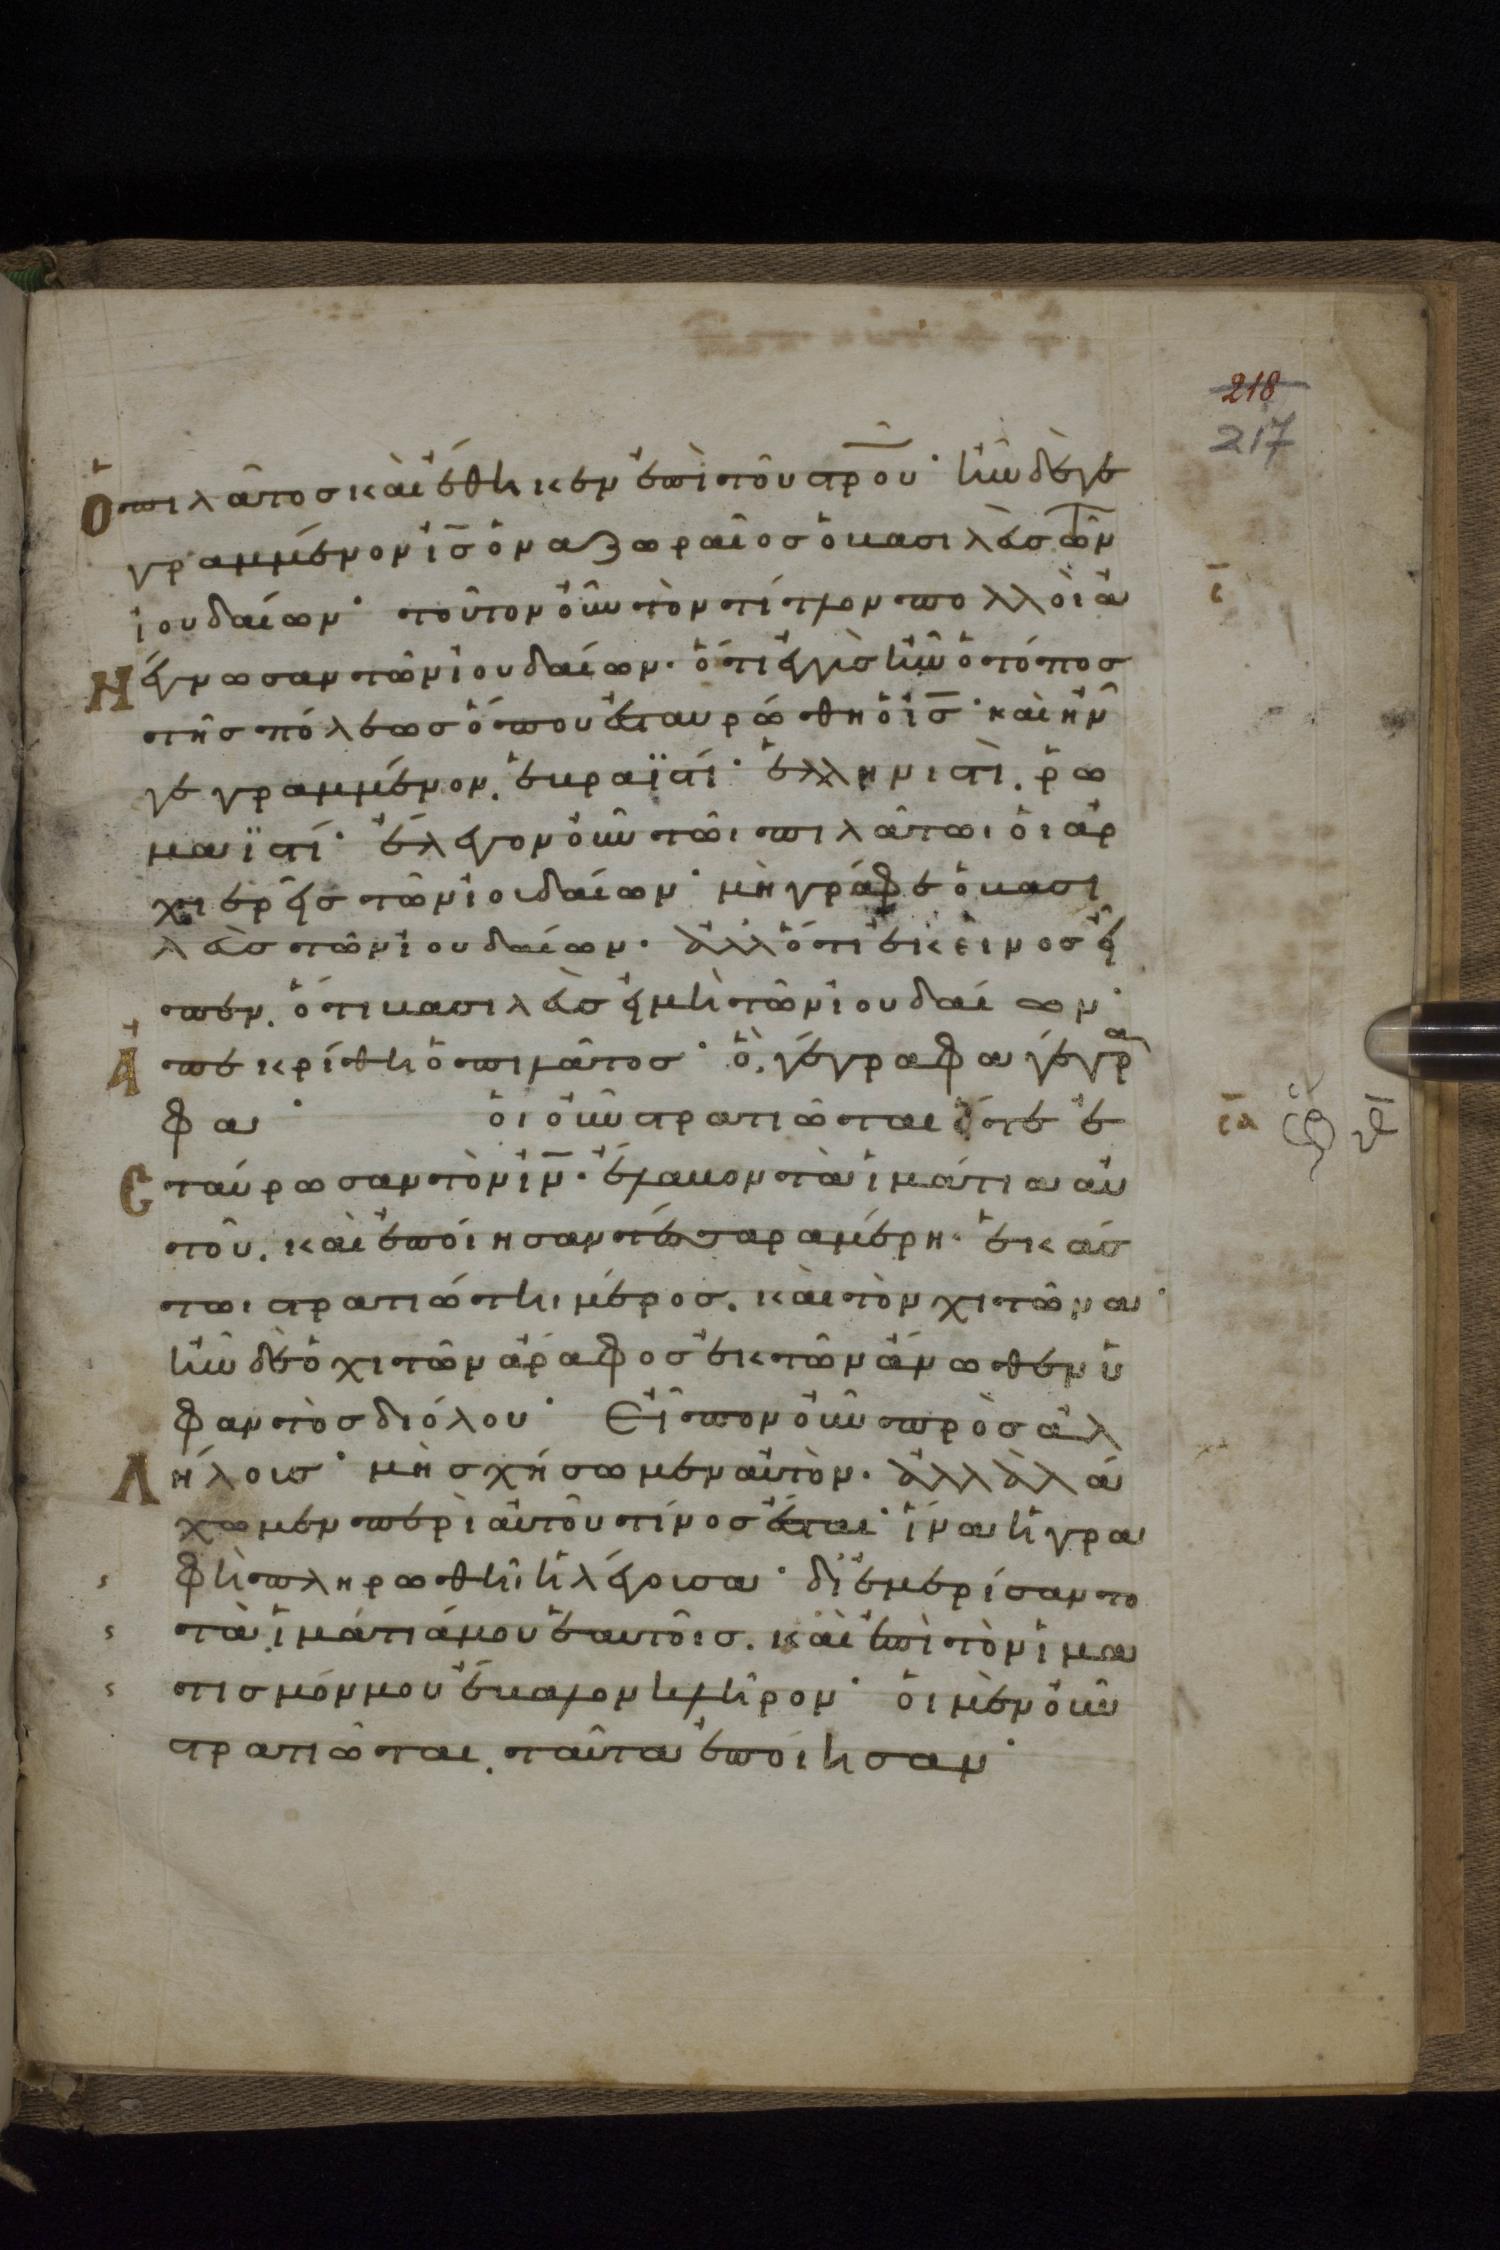 218
217
ὁ πιλᾶτος καὶ ἔθηκεν ἐπὶ τοῦ στρ̅οῦ· ἦν δὲ γε
γραμμένον ι̅ς̅ ὁ ναζωραῖος ὁ βασιλεὺς τῶν
ἰουδαίων· τοῦτον οὖν τὸν τίτλον πολλοὶ ἀ
νέγνωσαν τῶν ἰουδαίων· ὅτι ἐγγὺς ἦν ὁ τόπος
τῆς πόλεως ὅπου ἐσταυρώθη ὁ ι̅ς̅· καὶ ἦν
γεγραμμένον. ἑβραϊστί· ἑλληνιστὶ. ῥω
μαϊστί· ἔλεγον οὖν τῶι πιλάτωι οἱ ἀρ
χιερεῖς τῶν ἰουδαίων· μὴ γράφε ὁ βασι
λεὺς τῶν ἰουδαίων· ἀλλ' ὅτι ἐκεῖνος εἶ
πεν. ὅτι βασιλεὺς εἰμὶ τῶν ἰουδαίων·
ἀπεκρίθη ὁ πιλᾶτος· ὃ. γέγραφα γέγρα
φα· οἱ οὖν στρατιῶται ὅτε ἐ
σταύρωσαν τὸν ι̅ν̅· ἔλαβον τὰ ἱμάτια αὐ
τοῦ. καὶ ἐποίησαν τέσσαρα μέρη· ἑκάσ
τωι στρατιώτηι μέρος. καὶ τὸν χιτῶνα·
ἦν δὲ ὁ χιτῶν ἄραφος ἐκ τῶν ἄνωθεν ὑ
φαντὸς δι' ὅλου· Εἶπον οὖν πρὸς ἀλ
λήλοις· μὴ σχήσωμεν αὐτὸν· ἀλλὰ λά
χωμεν περὶ αὐτοῦ τίνος ἔσται· ἵνα ἡ γρα
φὴ πληρωθῆι ἡ λέγουσα· διεμερίσαντο
τὰ ἱμάτιά μου ἑαυτοῖς. καὶ ἐπὶ τὸν ἱμα
τισμόν μου ἔβαλον κλῆρον· οἱ μὲν οὖν
στρατιῶται. ταῦτα ἐποίησαν·